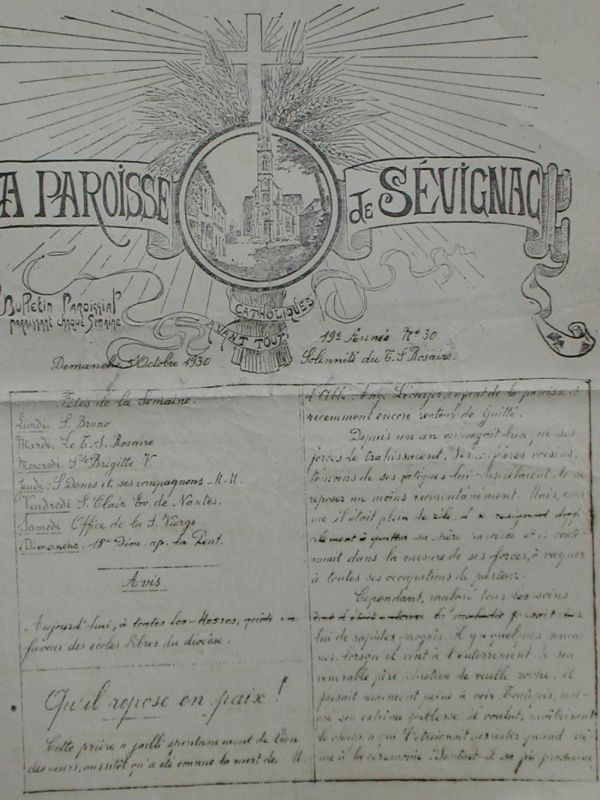 A PAROISSE de SÉVIGNAC
Bulletin Paroissial
paraissant chaque Semaine
CATHOLIQUES
AVANT TOUT
19e Année No 30
Demanche 5 Octobre 1930
Solennité du T. S. Rosaire.
Fêtes de la Semaine.
Lundi. S. Bruno
Mardi. Le T.-S. Rosaire
Mercredi. Ste Brigitte V.
Jeudi. S. Denis et ses compagnons M.M.
Vendredi S. Clair Ev. de Nantes.
Samedi Office de la S. Vierge
Dimanche. 18e Dim. ap. la Pent.
Avis
Aujourd'hui, à toutes les Messes, quête en
faveur des écoles libres du diocèse.
Qu'il repose en paix !
Cette prière a jailli spontanément de
des cœurs, aussitôt qu'a été connue la mort de M.
l'Abbé enfant de la paroisse et
recemment encore recteur de Guitté.
Depuis un an on voyait bien que ses
forces le trahissaient. Ses confrères voisins,
témoins de ses fatigues lui conseillaient de se
reposer au moins momentanément. Mais, com-
me il était plein de zèle, il se resignait diffi-
cilement à quitter sa chère paroisse et il conti-
nuait dans la mesure de ses forces, à vaquer
à toutes ses occupations de pasteur.
Cependant, malgré tous les soins
dont il était entouré la maladie faisait chez
lui de rapides progrès. Il y a quelques semai-
nes, lorsqu'il vint à l'enterrement de son
vénérable père, chrétien de vieille roche, il
faisait vraiment peine à voir. Toutefois, mal-
gré son extrême faiblesse, il voulut,
le chagrin qui l'étreignait assister quand mê-
me à la cérémonie. Sentait-il sa fin prochaine